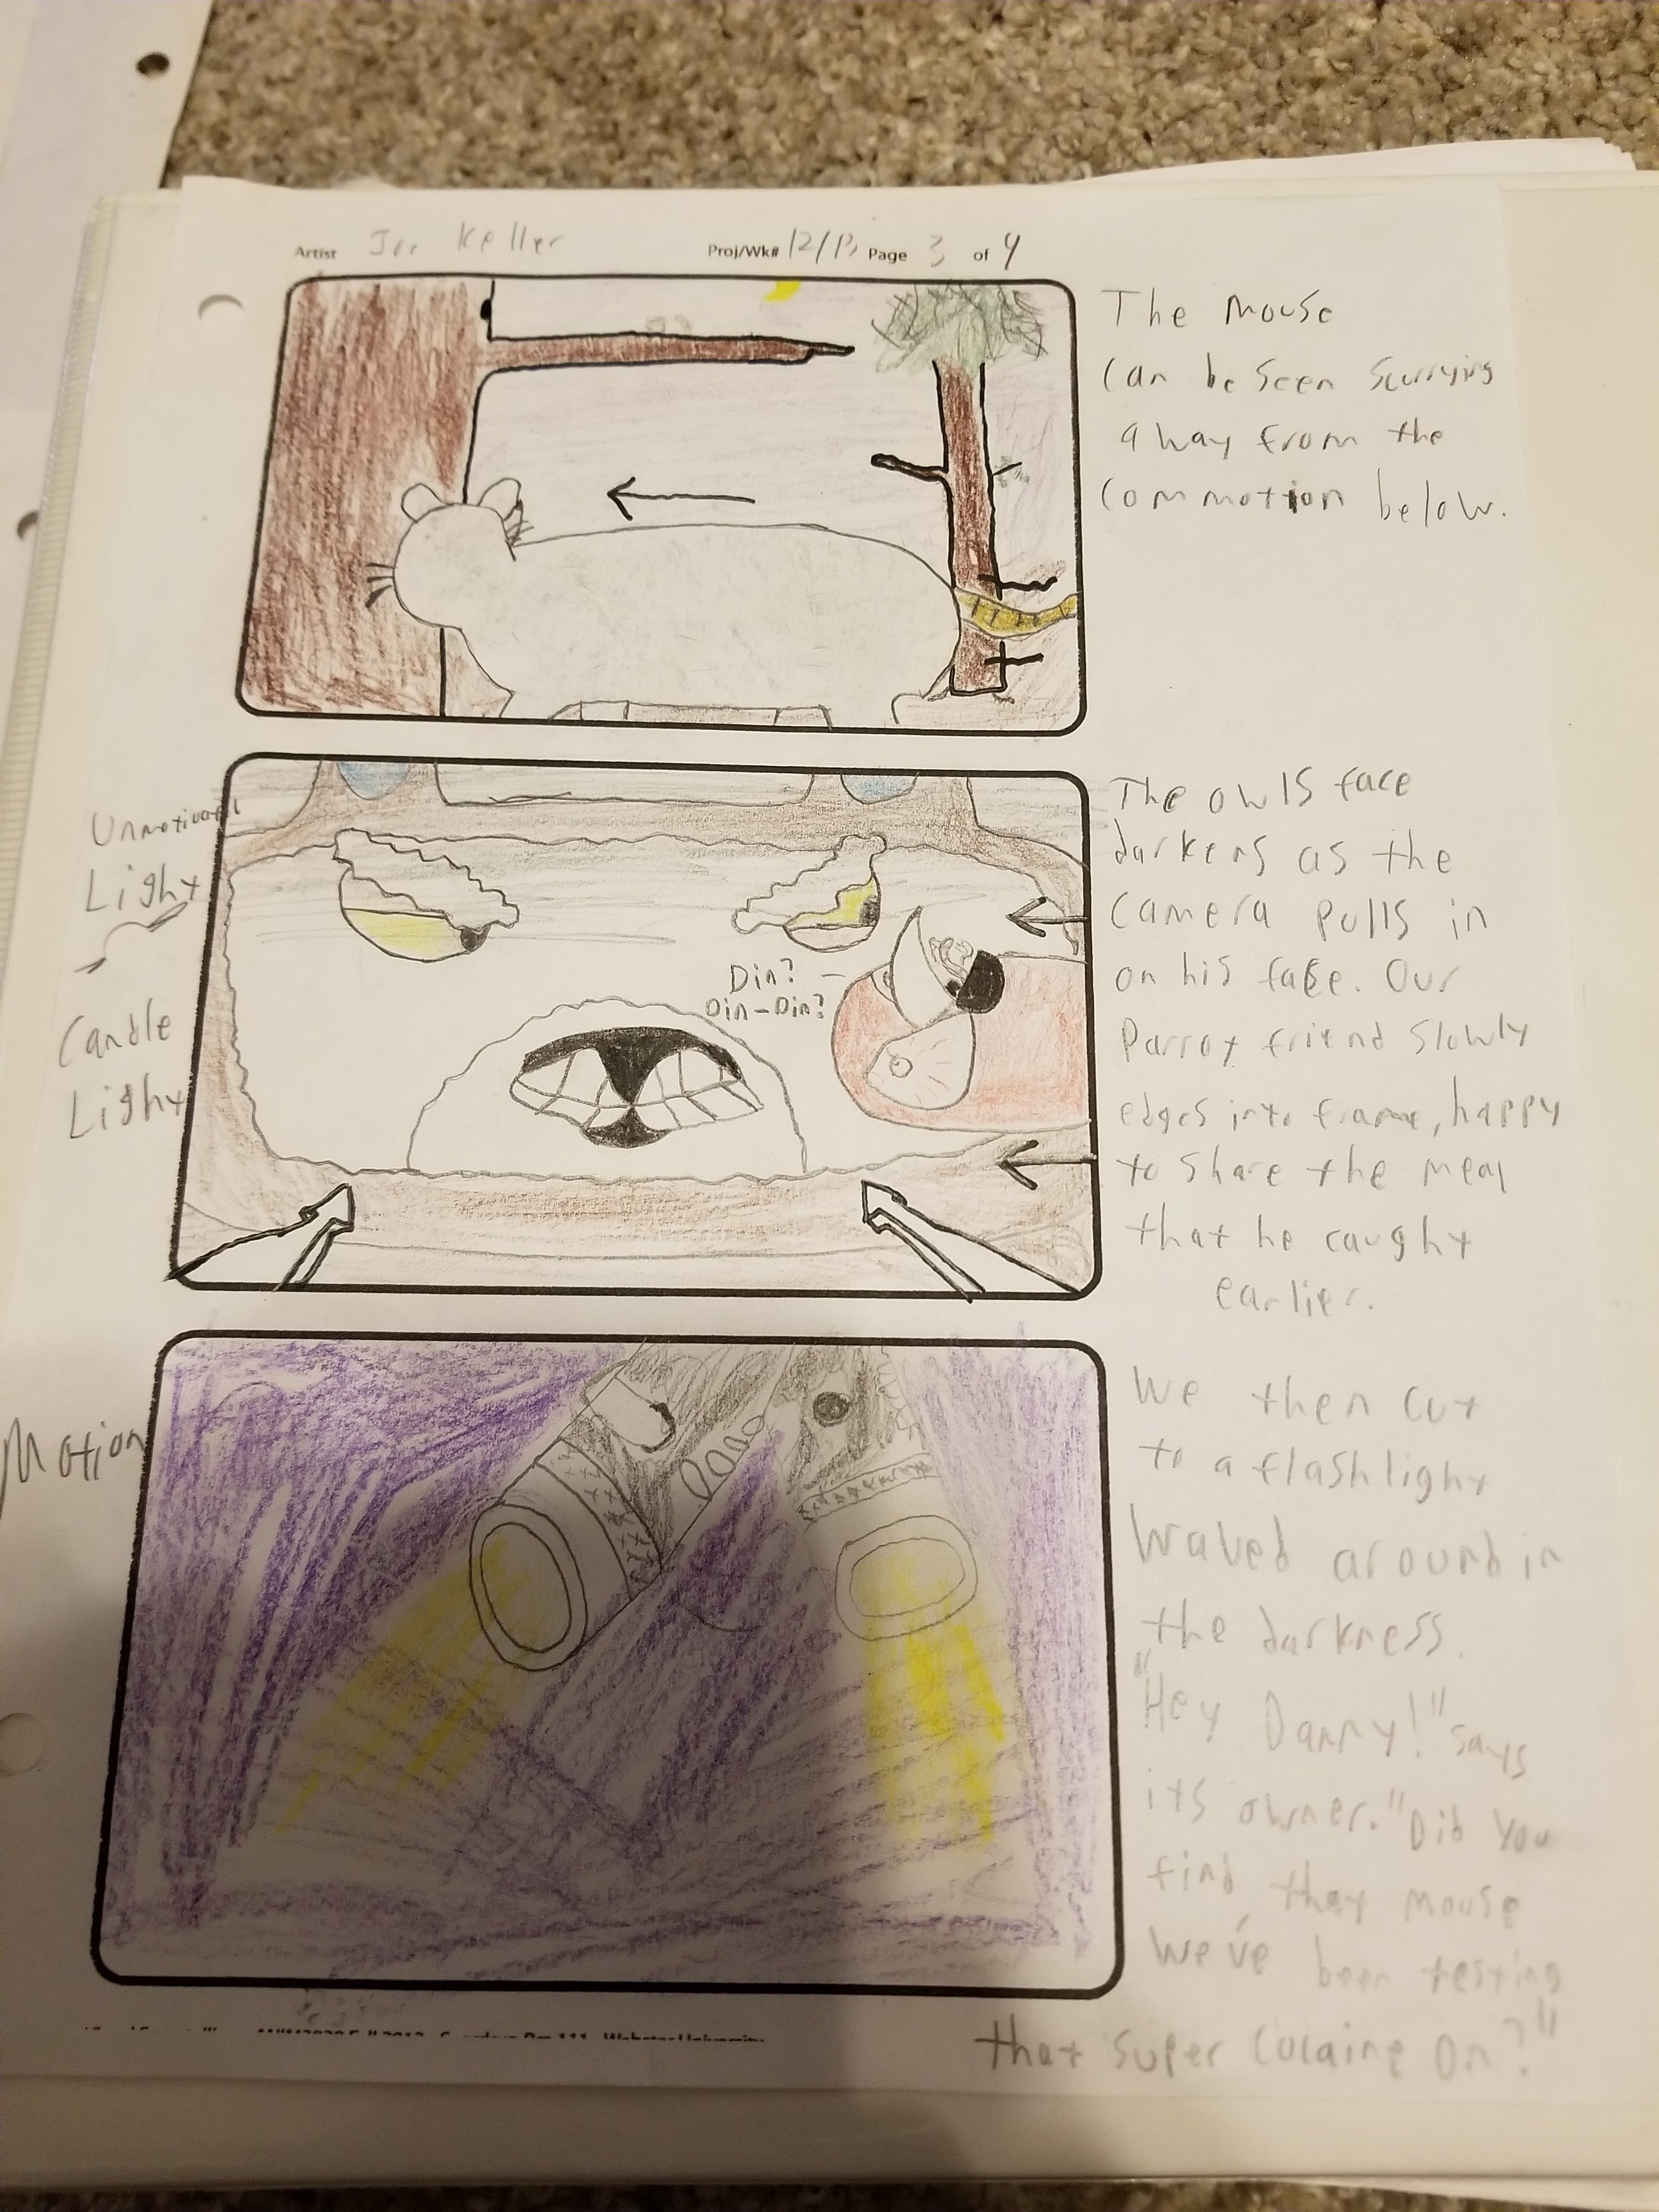 Artist Joe Keller Proj/Wk# 12/13 Page 3 of 4
The mouse
can be seen scurrying
away from the
commotion below.
Unmotivated
Light
Candle
Light
Din?
Din-Din?
The owls face
darkens as the
camera pulls in
on his face. Our
Parrot friend slowly
edges into frame, happy
to share the meal
that he caught
earlier.
Motion
We then cut
to a flashlight
waved around in
the darkness.
"Hey Danny!" says
its owner. "Did you
find that mouse
we've been testing
that super cocaine on?"
Webster University